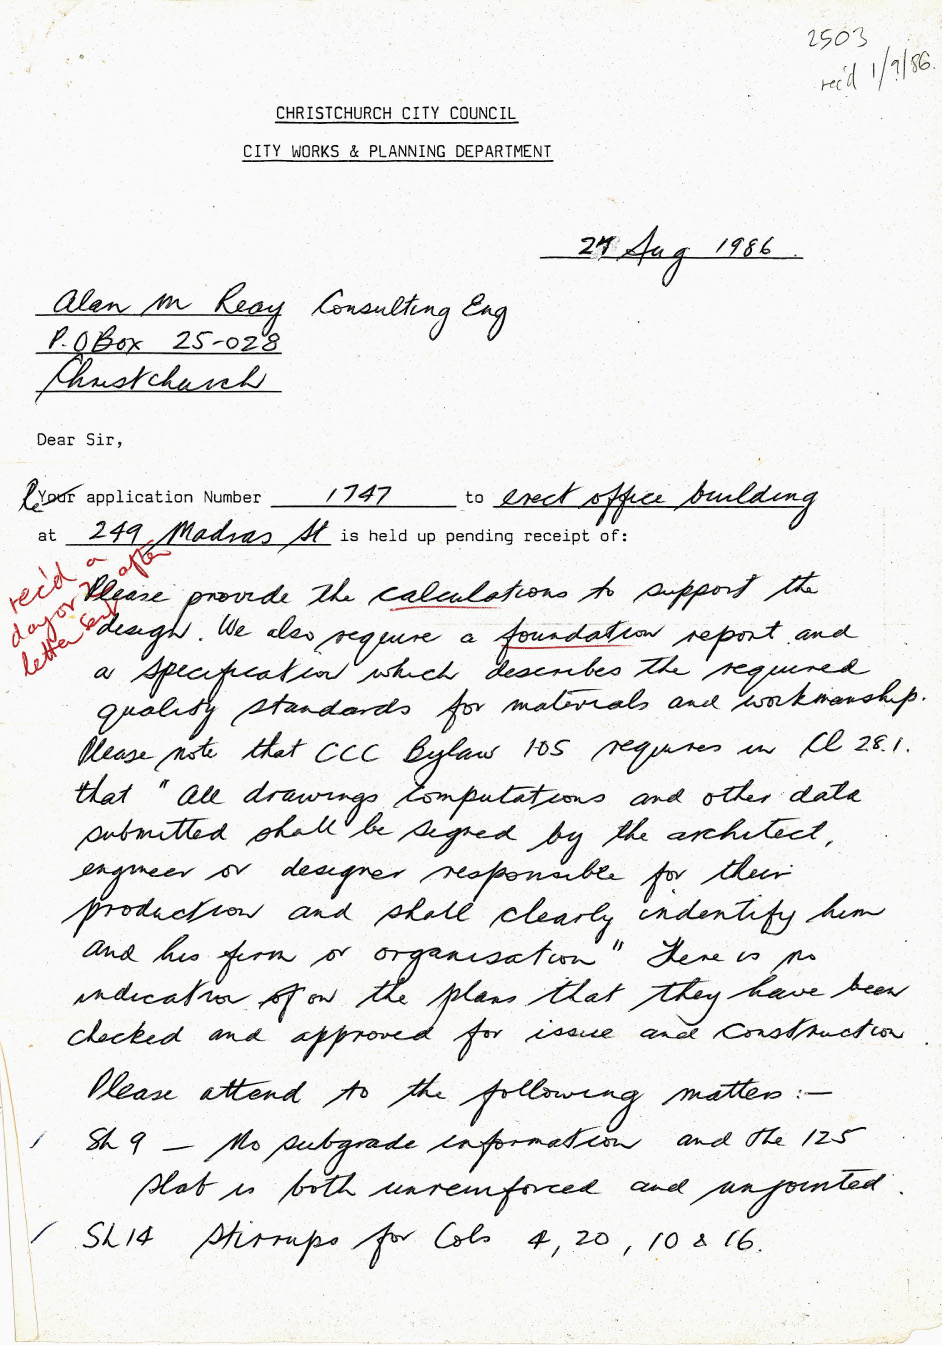 2503
rec'd 1/9/86.
CHRISTCHURCH CITY COUNCIL
CITY WORKS & PLANNING DEPARTMENT
27 Aug 1986
Alan M Reay Consulting Eng
P.O Box 25-028
Christchurch
Dear Sir,
Re Your application Number 1747 to erect office building
at 249 Madras St is held up pending receipt of:
rec'd a
day or 2 after
letter sent
Please provide the calculations to support the
design. We also require a foundation report and
a specification which describes the required
quality standards for materials and workmanship.
Please note that CCC Bylaw 105 requires in Cl 28.1.
that "All drawings computations and other data
submitted shall be signed by the architect,
engineer or designer responsible for their
production and shall clearly indentify him
and his firm or organisation" There is no
indication on the plans that they have been
checked and approved for issue and construction.
Please attend to the following matters :-
Sh 9 - No subgrade information and the 125
slab is both unreinforced and unjointed.
Sh 14 Stirrups for Cols 4, 20, 10 & 16.